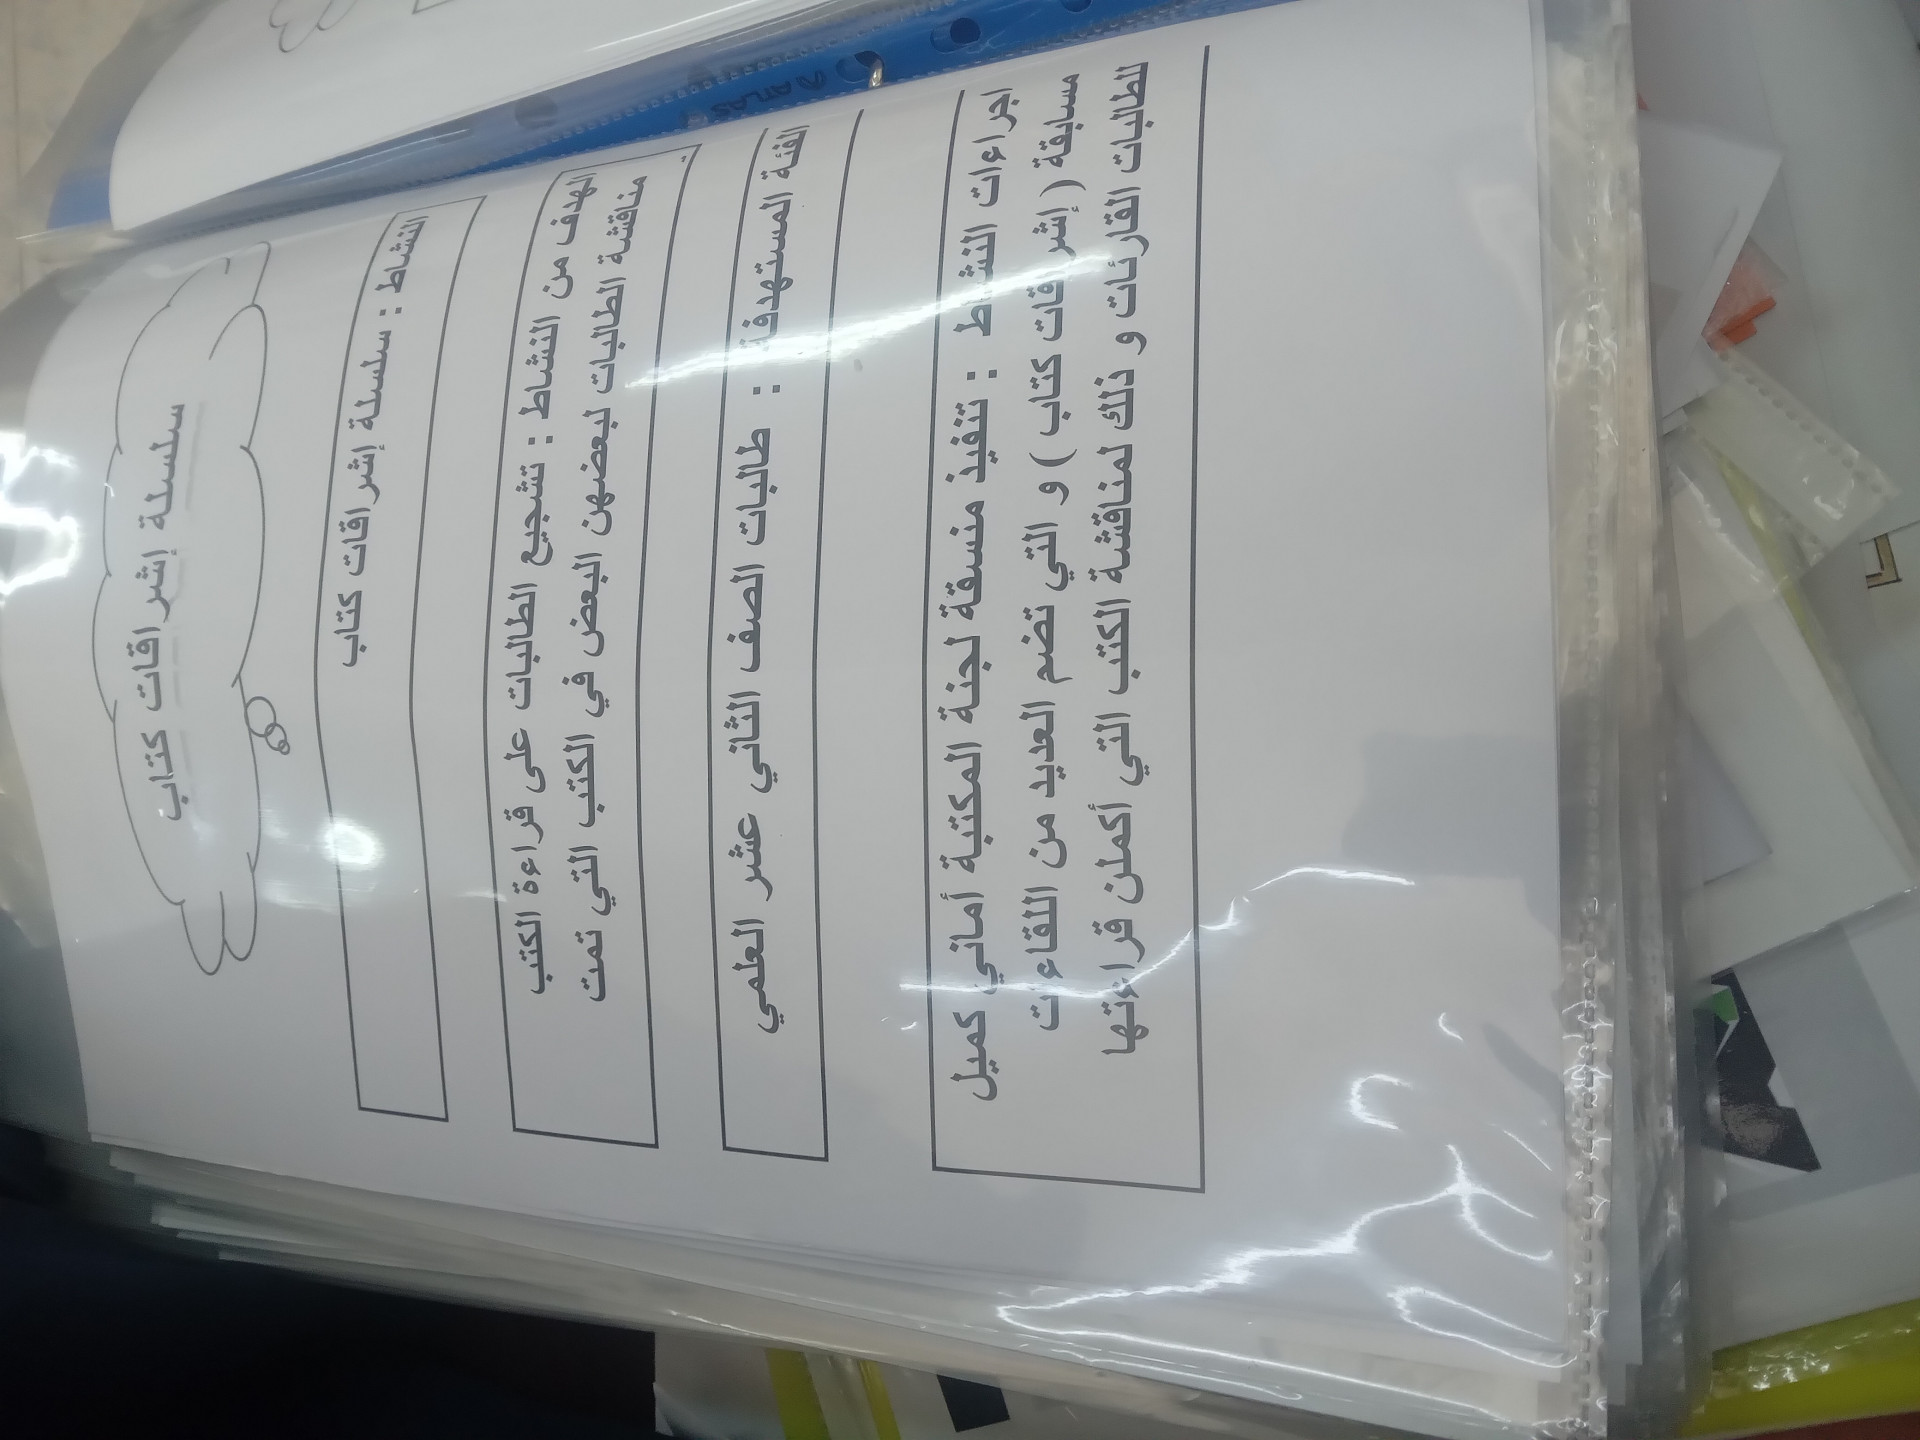 سلسلة إشراقات كتاب
النشاط : سلسلة إشراقات كتاب
الهدف من النشاط : تشجيع الطالبات على قراءة الكتب
مناقشة الطالبات لبعضهن البعض في الكتب التي تمت
الفئة المستهدفة : طالبات الصف الثاني عشر العلمي
اجراءات النشاط : تنفيذ منسقة لجنة المكتبة أماني كميل
مسابقة ( إشراقات كتاب ) و التي تضم العديد من اللقاءات
للطالبات القارئات و ذلك لمناقشة الكتب التي أكملن قراءتها
ATLAS